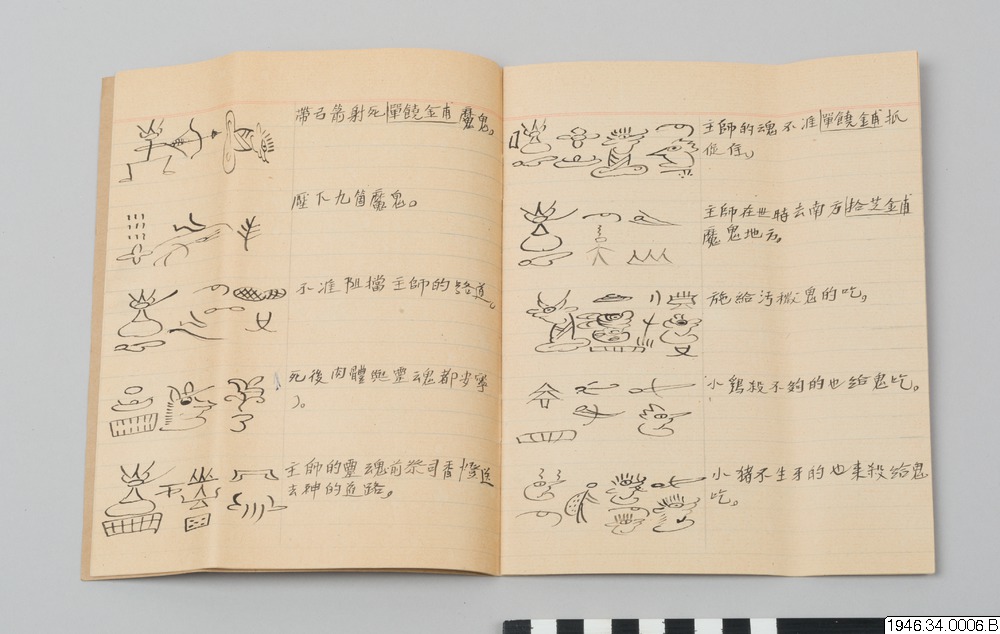 帶弓箭射死單饒金甫魔鬼。
壓下九箇魔鬼。
不准阻擋主師的路道。
死後肉體與靈魂都安寧
)。
主師的靈魂前祭司香燈送
去神的道路。
主師的魂不准單饒鋪抵
住。
主師在世時去南方拾芝金甫
魔鬼地方。
施給污穢鬼的吃。
小鷄殺不夠的也給鬼吃。
小猪不生牙的也来殺給鬼
吃。
1946.34.0006.B